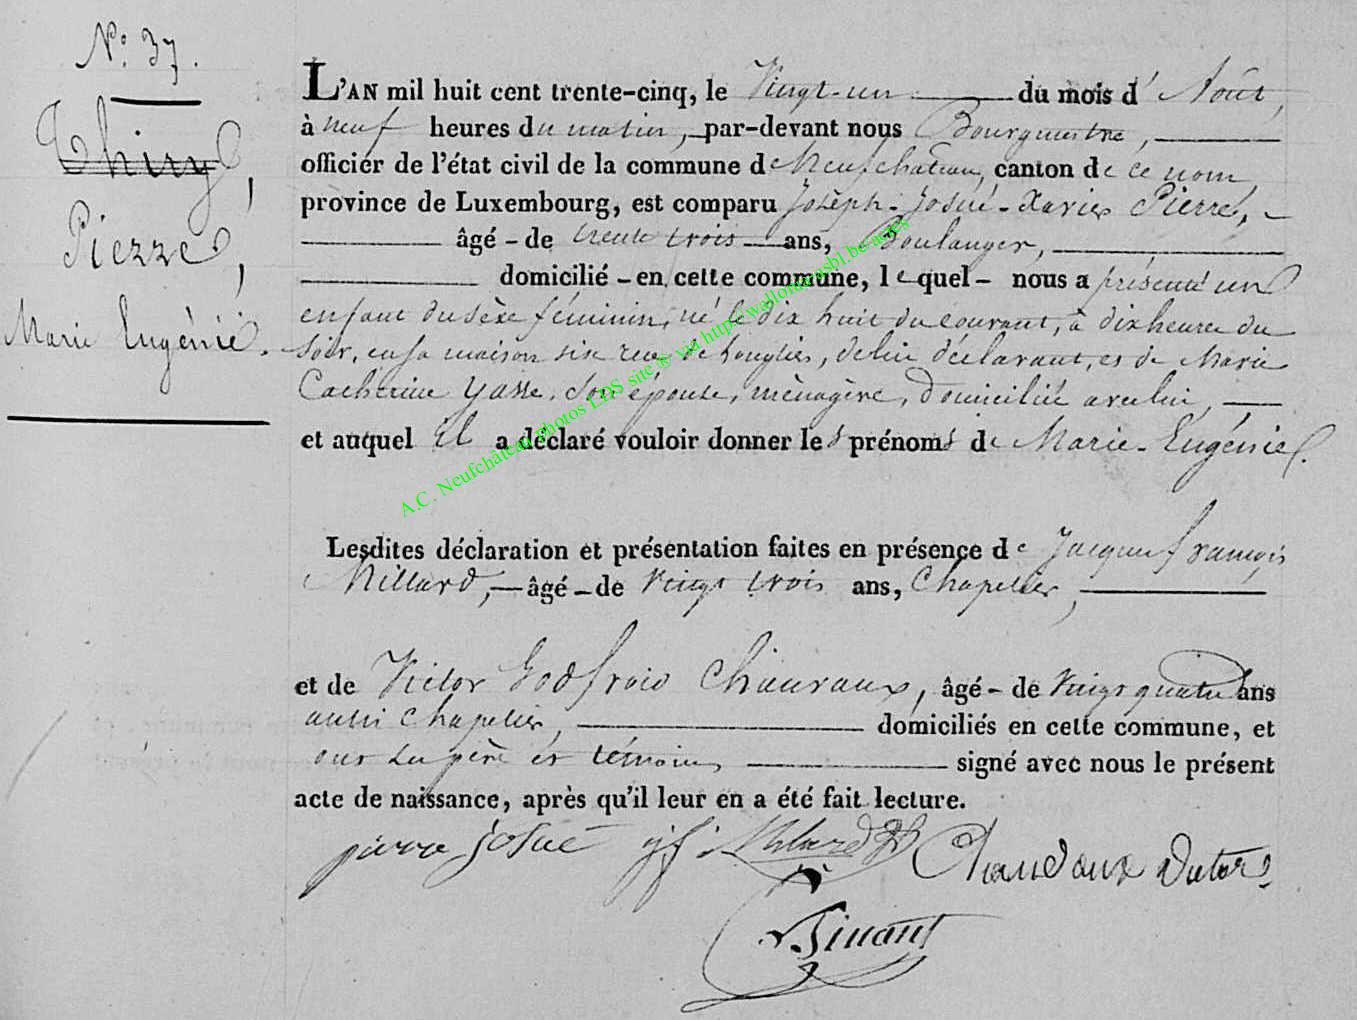 N.° 37.
Thiry,
Pierre,
Marie Eugénie.
L'AN mil huit cent trente-cinq, le Vingt-un du mois d'Août,
à neuf heures du matin, par-devant nous Bourgmestre,
officier de l'état civil de la commune de Neufchâteau, canton de ce nom,
province de Luxembourg, est comparu Joseph-Josué-Xavier Pierre,
âgé - de trente trois ans, Boulanger,
domicilié - en cette commune, lequel - nous a présenté un
enfant du sèxe féminin, né le dix huit du courant, à dix heures du
soir, en sa maison sise rue de , de lui déclarant, et de Marie
Catherine Yasse, son épouse, ménagère, domiciliée avec lui,
et auquel il a déclaré vouloir donner les prénoms de Marie-Eugénie.
Lesdites déclaration et présentation faites en présence de Jacques françois
Millard, - âgé - de Vingt trois ans, Chapelier,
et de Victor Godfroid Chauvaux, âgé - de Vingt quatre ans
aussi chapelier, domiciliés en cette commune, et
ont les père et témoins signé avec nous le présent
acte de naissance, après qu'il leur en a été fait lecture.
pierre josué jf Milard Chauvaux Victor
Pinant
A.C. Neufchâteau photos LDS site ® via http://wallonia-asbl.be/actes